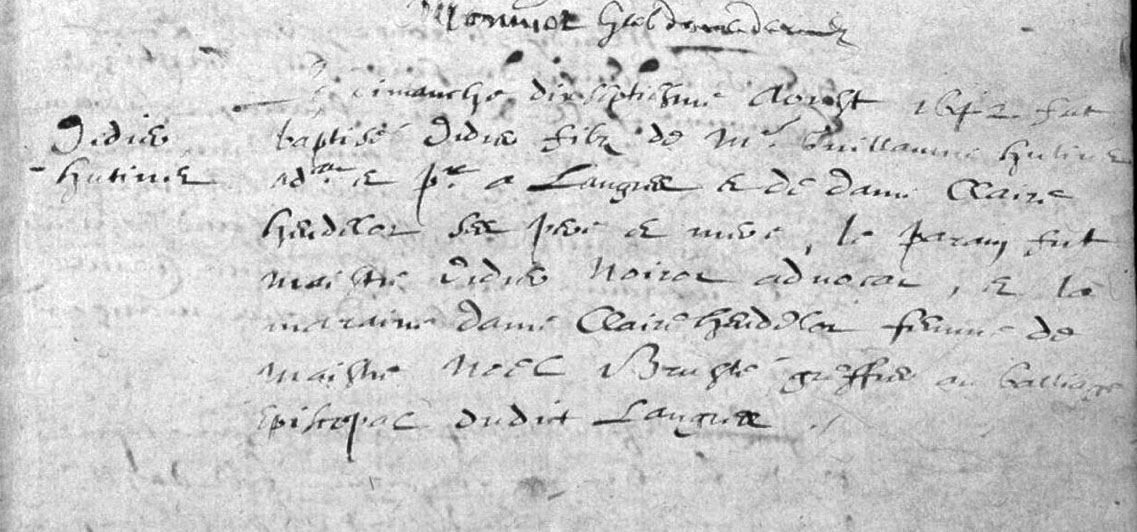 Monniot
Dimanche dixseptiesme Aoust 1642 fut
Didier
baptisé Didier filz de Mre Guillaume Hutinet
Hutinet
advt. et pr. a Langres et de dame Claire
Heudelot ses pere et mere, le parain fut
maistre Didier Noirot advocat, et la
maraine dame Claire Heudelot femme de
maistre Noel Bruslé greffier au balliage
Episcopal dudit Langres ./